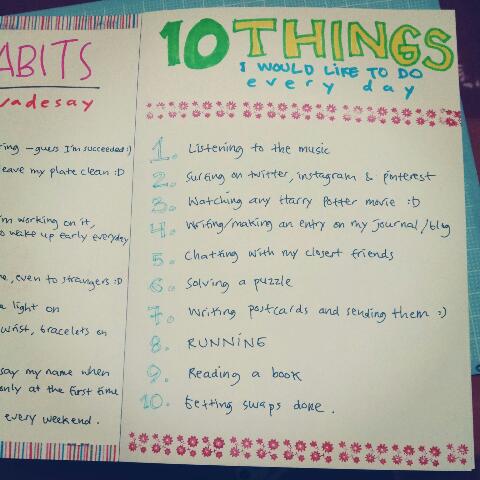 ABITS
vadesay
ring - guess I'm succeeded :)
eave my plate clean :D
I'm working on it,
o wake up early everyday
e, even to strangers :D
e light on
wrist, bracelets on
say my name when
only at the first time
every weekend.
10 THINGS
I WOULD LIKE TO DO
every day
1. Listening to the music
2. Surfing on twitter, instagram & pinterest
3. Watching any Harry Potter movie :D
4. Writing/making an entry on my journal/blog
5. Chatting with my closest friends
6. Solving a puzzle
7. Writing postcards and sending them :)
8. RUNNING
9. Reading a book
10. Getting swaps done.